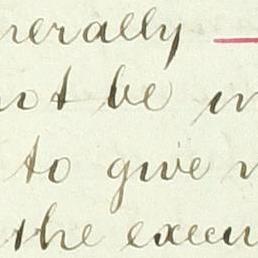 nerally
not be in
to give
the execu